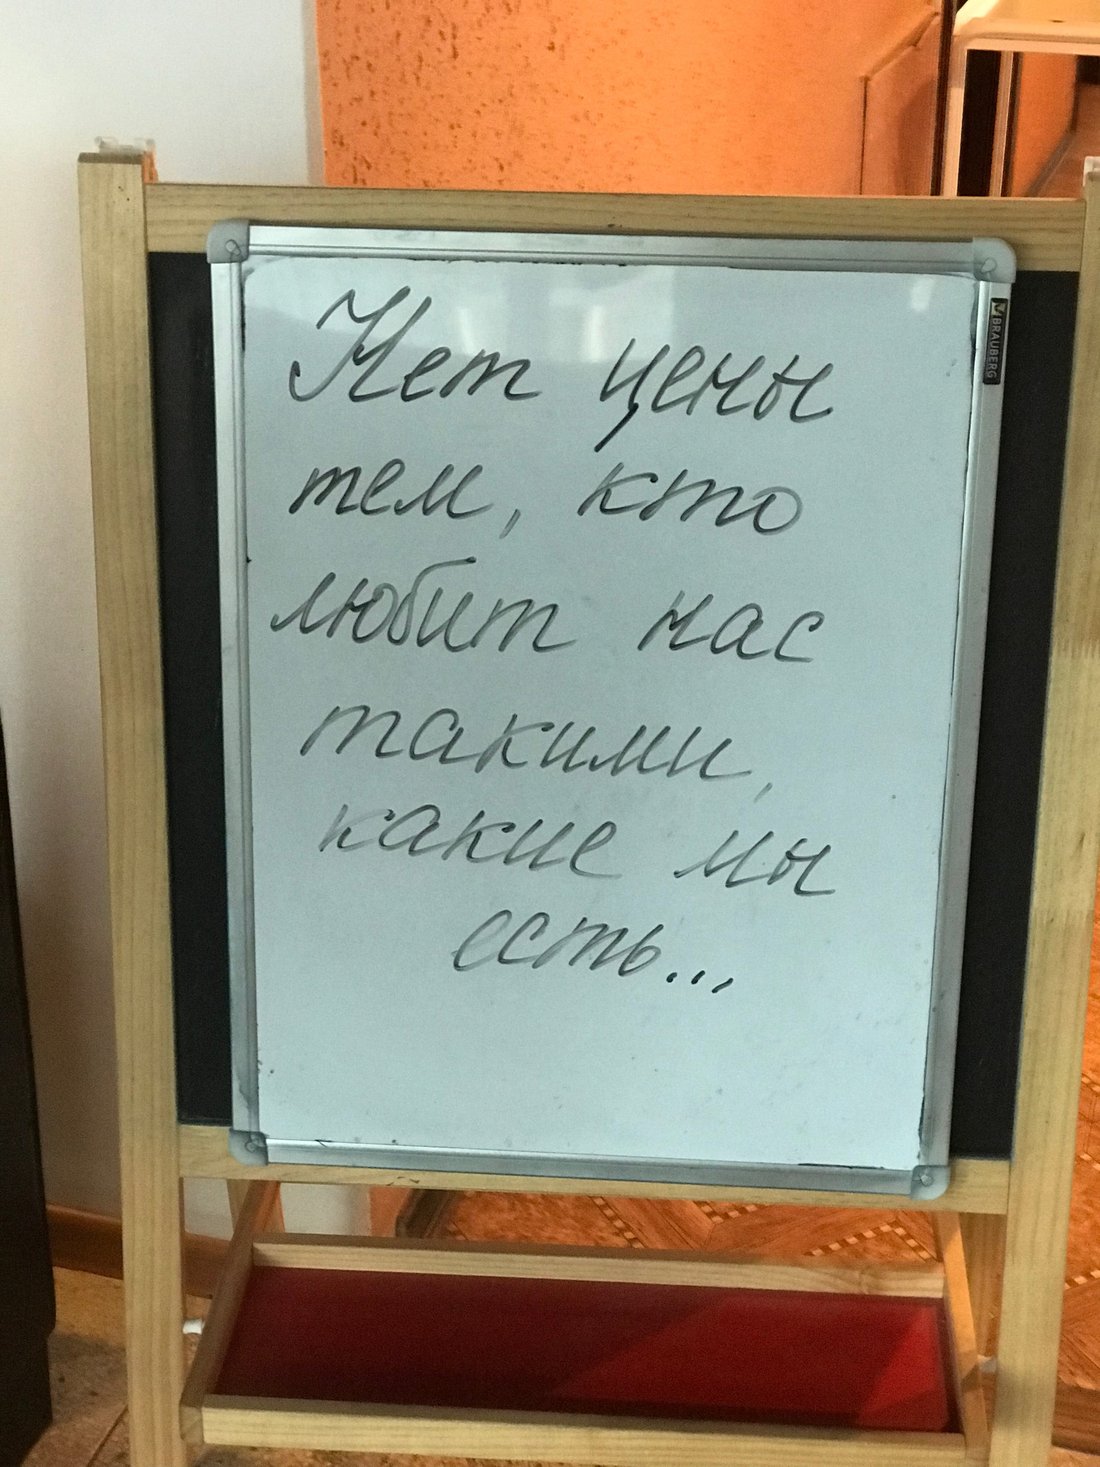 Нет цены
тем, кто
любит нас
такими,
какие мы
есть...
BRAUBERG